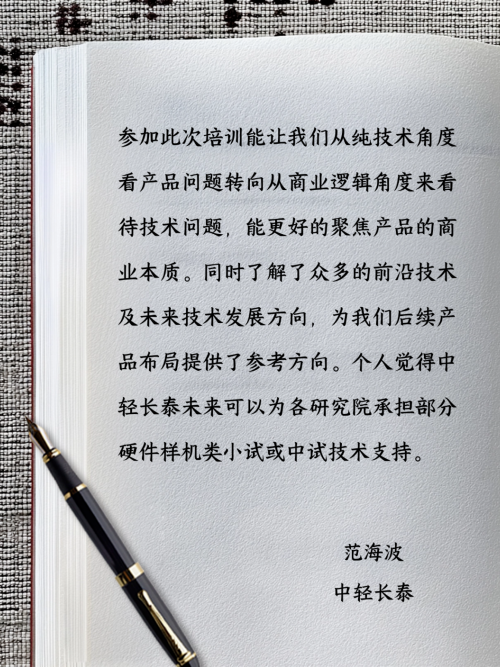 参加此次培训能让我们从纯技术角度
看产品问题转向从商业逻辑角度来看
待技术问题，能更好的聚焦产品的商
业本质。同时了解了众多的前沿技术
及未来技术发展方向，为我们后续产
品布局提供了参考方向。个人觉得中
轻长泰未来可以为各研究院承担部分
硬件样机类小试或中试技术支持。
范海波
中轻长泰